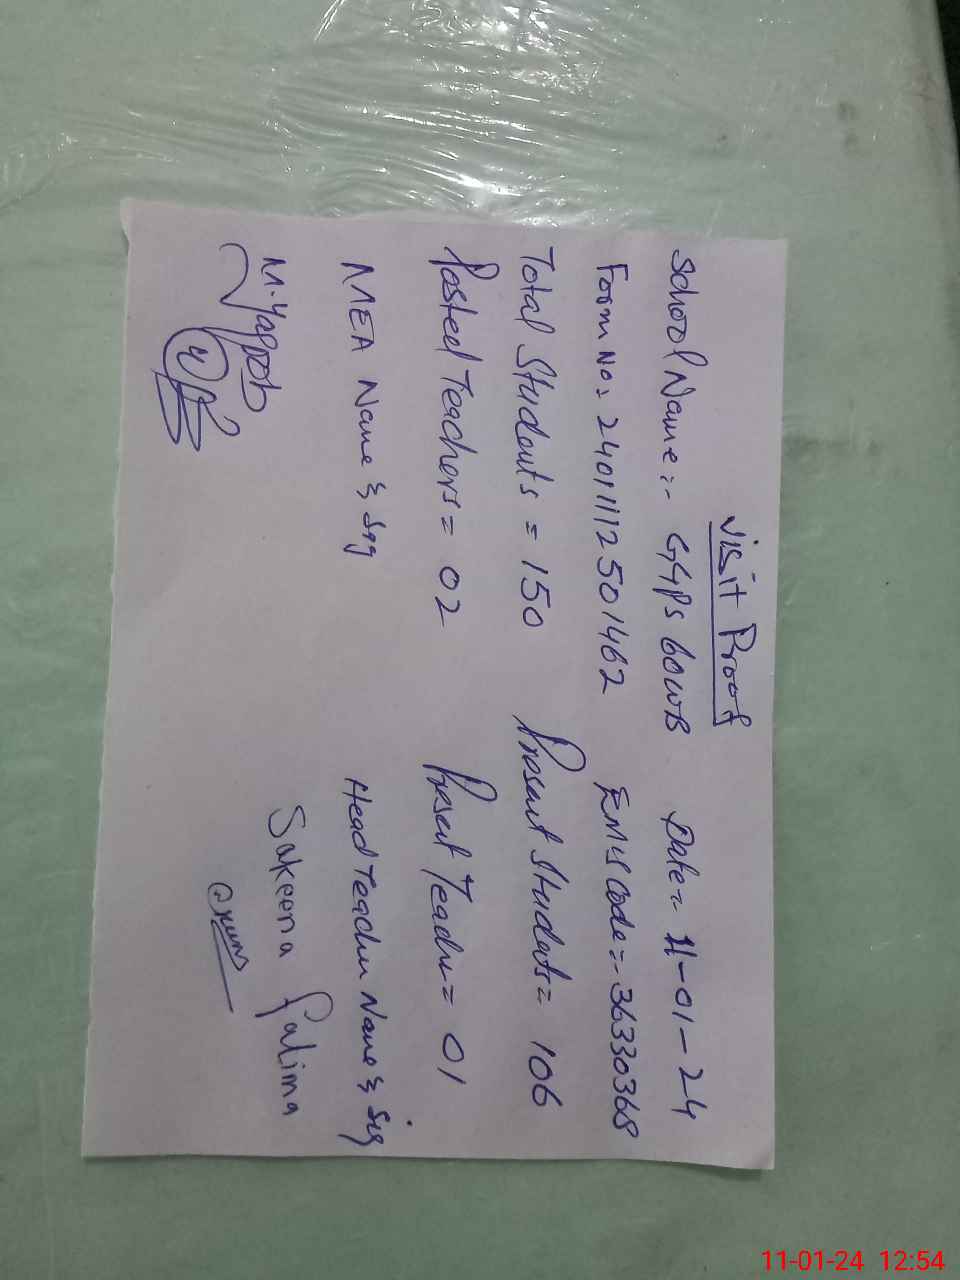 Visit Proof
School Name:- GGPS 60WB Date= 11-01-24
Form No: 24011112501462 EMIS Code=-36330368
Total Students = 150 Present Students= 106
Posted Teachers= 02 Present Teacher= 01
MEA Name & Sig Head Teacher Name & Sig
M.Yaqoob Sakeena Fatima
11-01-24 12:54